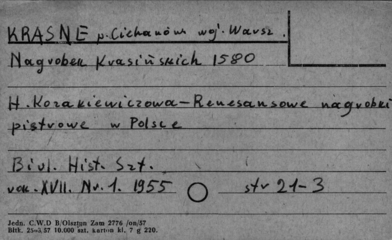 KRASNE p. Ciechanów woj. Warsz.
Nagrobek Krasińskich 1580
H. Kozakiewiczowa - Renesansowe nagrobki
piętrowe w Polsce
Biul. Hist. Szt.
vol. XVII. Nr. 1. 1955 str 21-3
Jedn. C.W.D B/Olsztyn Zam 2776 /on/57
Błtk. 25-3.57 10.000 szt. karton kl. 7 g 220.